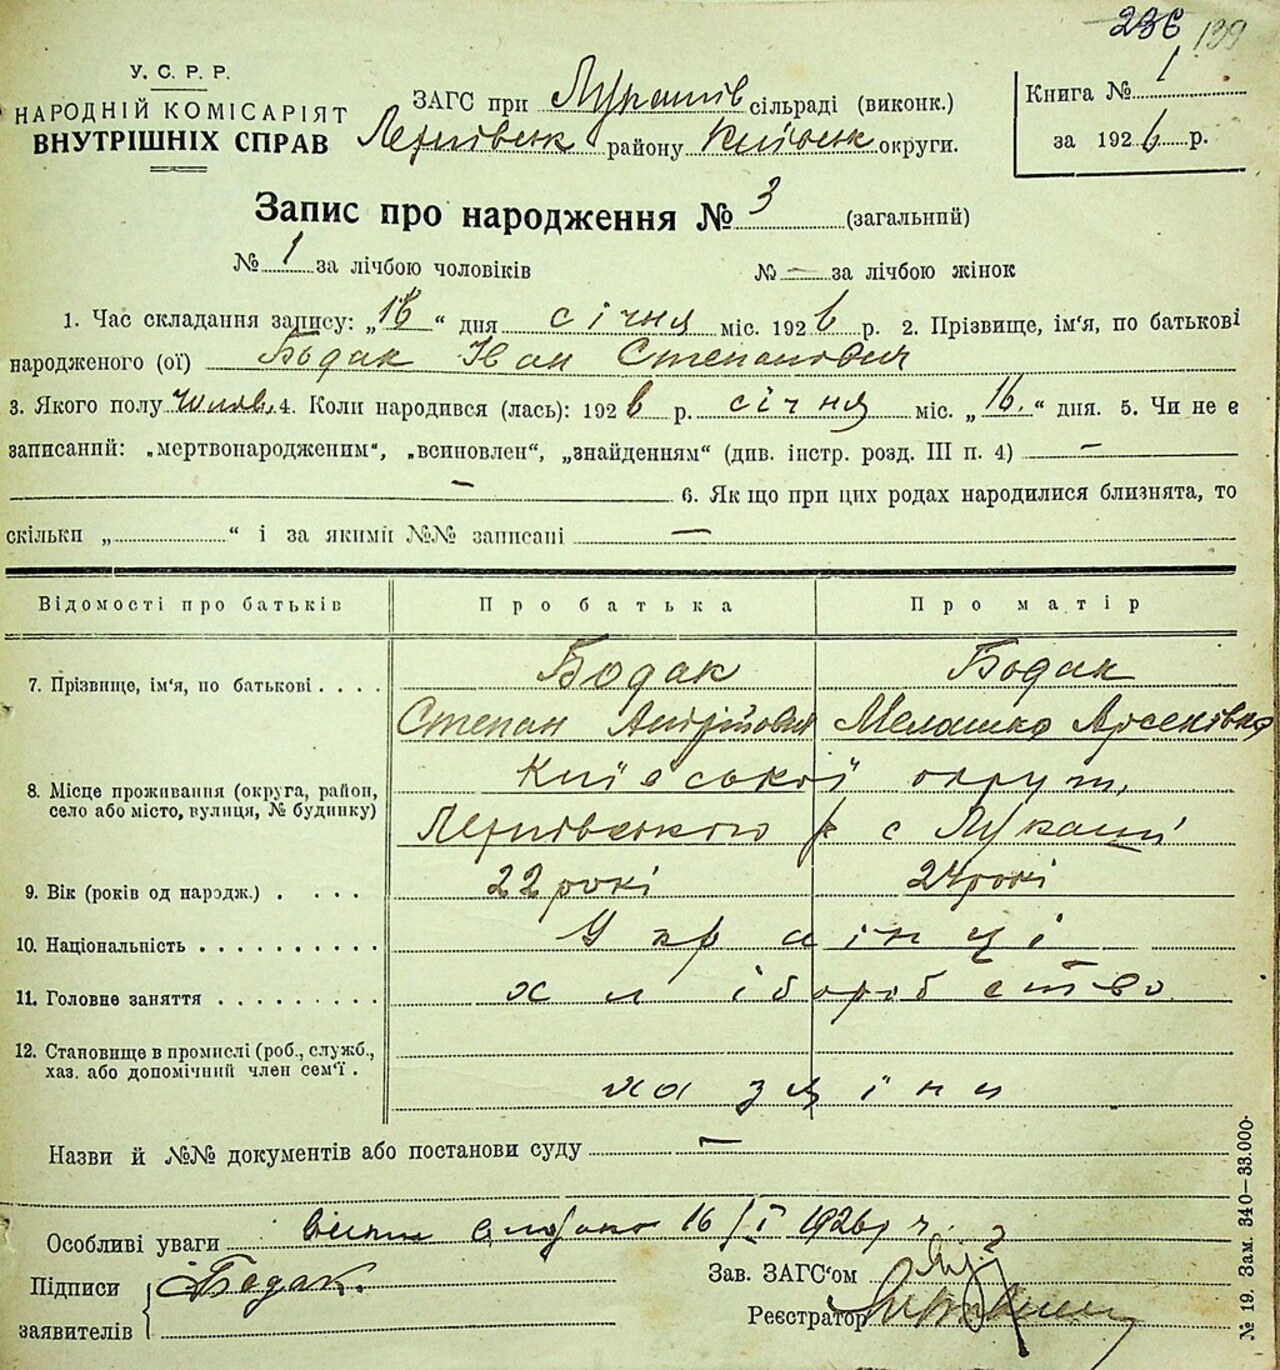 236 139
У. С. Р. Р.
НАРОДНІЙ КОМІСАРІЯТ
ВНУТРІШНІХ СПРАВ
ЗАГС при сільраді (виконк.)
району Київськ округи.
Книга № 1
за 1926 р.
Запис про народження № 3 (загальний)
№ 1 за лічбою чоловіків № — за лічбою жінок
1. Час складання запису: „16“ дня січня міс. 1926 р. 2. Прізвище, ім'я, по батькові
народженого (ої) Бодак Іван Степанович
3. Якого полу чолов. 4. Коли народився (лась): 1926 р. січня міс. „16.“ дня. 5. Чи не є
записаний: „мертвонародженим“, „всиновлен“, „знайденням“ (див. інстр. розд. III п. 4) —
— 6. Як що при цих родах народилися близнята, то
скільки „ “ і за якими №№ записані —
Відомості про батьків Про батька Про матір
7. Прізвище, ім'я, по батькові . . . . Бодак Бодак
Степан Мелашка Арсенівна
8. Місце проживання (округа, район,
село або місто, вулиця, № будинку)
Київської округи,
р с Лукаші
9. Вік (років од народж.) . . . . 22 рокі 24 рокі
10. Національність . . . . . . . . . . Українці
11. Головне заняття . . . . . . . . . хліборобство
12. Становище в промислі (роб., служб.,
хаз. або допомічний член сем'ї .
хазяіни
Назви й №№ документів або постанови суду —
Особливі уваги 16/I 1926 р
Підписи
заявителів
Бодак.
Зав. ЗАГС'ом
Реєстратор
№ 19. Зам. 340—33.000.